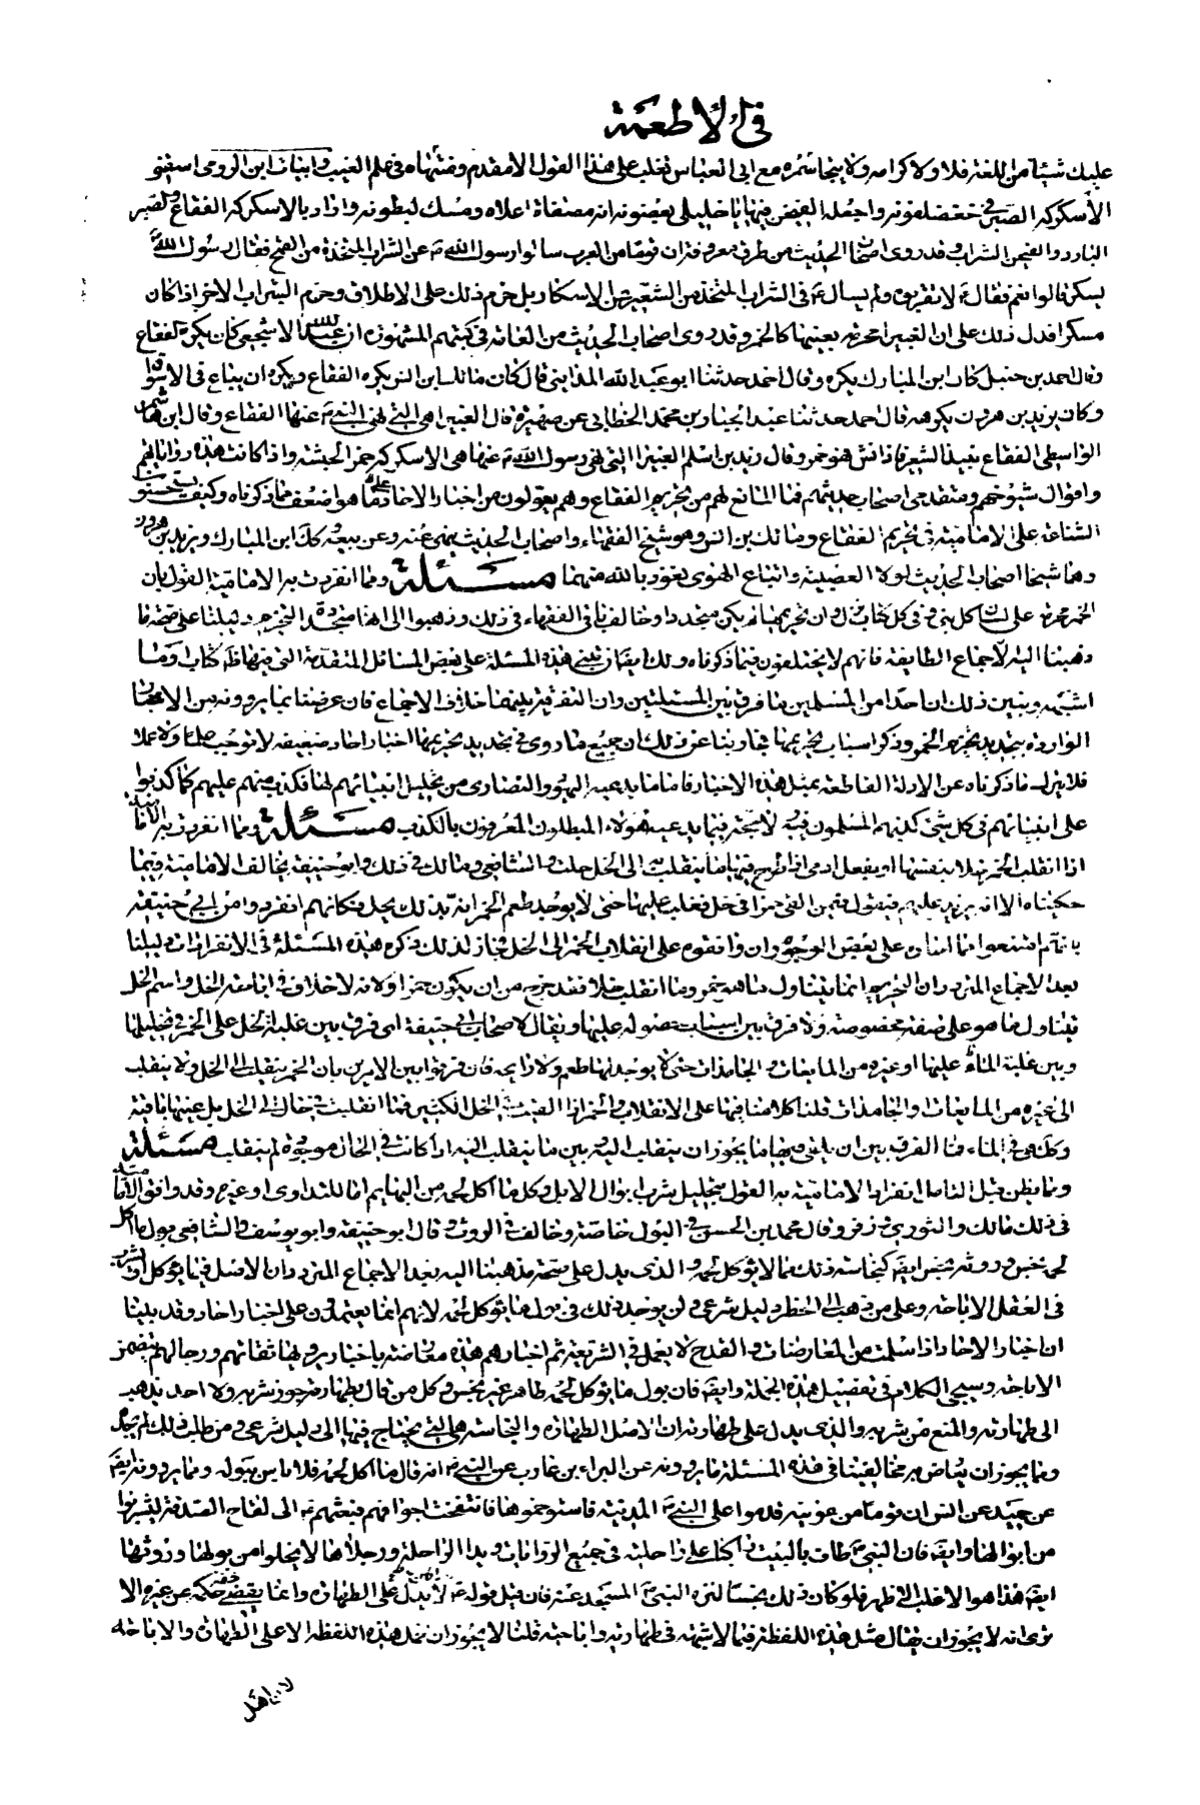 في الأطعمة
عليك شيئا من اللغة فلا ولا كرامة ولا يتجاسر مع ابى العباس ثعلب على هذا القول الا مقدم ومتهاه في علم الغيب وابيات ابن الرومى اسقنى
الأسكركة الصبر في جعضلفونه واجعل القيض فيها يا خليلى بغصونه انه مصفاة اعلاه ومسك لبطونه واراد بالاسكركة الفقاع والصبر
البارد والفيحن الشراب وقد روى اصحاب الحديث من طرق معروفة ان قوما من العرب سالوا رسول الله ص عن الشراب المتخذ من القمح فقال رسول الله ص
يسكر قالوا نعم فقال ع لا تقربوه ولم يسال ع في الشراب المتخذ من الشعير عن الاسكار بل حرم ذلك على الاطلاق وحرم الشراب الاخر اذا كان
مسكرا فدل ذلك على ان الغبيراء محرمة بعينها كالخمر وقد روى اصحاب الحديث من العامة في كتبهم المشهورة ان عبد الله الاشجعي كان يكره الفقاع
وقال احمد بن حنبل كان ابن المبارك يكرهه وقال احمد حدثنا ابو عبد الله المداينى قال كان مالك بن انس يكره الفقاع ويكره ان يباع في الاسواق
وكان يزيد بن هرون يكرهه قال احمد حدثنا عبد الجبار بن محمد الخطابى عن ضميرة قال الغبيرا هى التى نهى النبى ص عنها الفقاع وقال ابن هاشم
الواسطى الفقاع نبيذ الشعير فاذا نش فهو خمر وقال زيد بن اسلم الغبيرا التى نهى رسول الله ص عنها هى الاسكركة خمر الحبشة واذا كانت هذه رواياتهم
واقوال شيوخهم ومتقدمى اصحاب حديثهم فما المانع لهم من تحريم الفقاع وهم يقولون من اخبار الاحاد على ما هو اضعف مما ذكرناه وكيف يستحسنون
الشناعة على الامامية في تحريم الفقاع ومالك بن انس وهو شيخ الفقهاء واصحاب الحديث ينهى عنه وعن بيعه وكك ابن المبارك ويزيد بن هرون
وهما شيخا اصحاب الحديث لولا العصبية واتباع الهوى نعوذ بالله منهما مسئلة ومما انفردت به الامامية القول بان
الخمر محرمة على لسان كل نبى وفي كل كتاب نزل وان تحريمها لم يكن متجددا وخالف باقى الفقهاء في ذلك وذهبوا الى انها متجددة التحريم دليلنا على صحة ما
ذهبنا اليه لاجماع الطايفة فانهم لا يختلفون فيما ذكرناه ولك ايضا ان تبنى هذه المسئلة على بعض المسائل المتقدمة التى فيها ظاهر كتاب وما
اشبهه وتبين ذلك ان احدا من المسلمين ما فرق بين المسئلتين وان التفرقة بينهما خلاف الاجماع فان عورضنا بما يروونه من الاخبار
الواردة بتجديد تحريم الخمر وذكر اسباب تحريمها فجوابنا عن ذلك ان جميع ما روى في تجديد تحريمها اخبار احاد ضعيفة لا توجب علما ولا عملا
فلا يترك ما ذكرناه من الادلة القاطعة بمثل هذه الاخبار فاما ما يدعيه اليهود والنصارى من تحليل انبيائهم لها فكذب منهم عليهم كما كذبوا
على انبيائهم في كل شئ كذبهم المسلمون فيه ولا حجة فيما يدعيه هؤلاء المبطلون المعروفون بالكذب مسئلة ومما انفردت به الامامية
اذا انقلبت الخمر خلا بنفسها او بفعل ادمى اذا طرح فيها ما ينقلب به الى الخل حلت والشافعى ومالك في ذلك وابو حنيفة يخالف الامامية فيما
حكيناه الا انه يزيد عليهم فيقول فيمن القى خمرا في خل فغلب عليها حتى لا يوجد طعم الخمر انه بذلك يحل فكانهم انفردوا من ابى حنيفة
بانهم امتنعوا مما اجازه على بعض الوجوه وان وافقوه على انقلاب الخمر الى الخل فجاز لذلك ذكر هذه المسئلة في الانفرادات دليلنا
بعد الاجماع المتردد ان التحريم انما يتناول ما هو خمر وما انقلب خلا فقد خرج من ان يكون خمرا ولانه لا خلاف في اباحة الخل واسم الخل
يتناول ما هو على صفة مخصوصة ولا فرق بين اسباب حصوله عليها ويقال لاصحاب ابى حنيفة اى فرق بين غلبة الخل على الخمر في تحليلها
وبين غلبة الماء عليها او غيره من المايعات والجامدات حتى لا يوجد لها طعم ولا رايحة فان فرقوا بين الامرين بان الخمر ينقلب الى الخل ولا ينقلب
الى غيره من المايعات والجامدات قلنا كلامنا فيها على الانقلاب والخمر اذا القيت في الخل الكثير فما انقلبت في الحال الى الخل بل عينها باقية
وكك هى في الماء فما الفرق بين ان يلقى فيها ما يجوز ان ينقلب اليه وبين ما ينقلب اليه اذا كانت في الحال موجودة لم ينقلب مسئلة
ومما يظن قبل التامل انفراد الامامية به القول بتحليل شرب ابوال الابل وكل ما اكل لحمه من البهايم اما للتداوى او غيره وقد وافق الامامية
في ذلك مالك والثورى وزفر وقال محمد بن الحسن في البول خاصة وخالف في الروث وقال ابو حنيفة وابو يوسف والشافعى بول ما اكل
لحمه نجس وروثه نجس ايضا كنجاسة ذلك مما لا يؤكل لحمه والذى يدل على صحة مذهبنا اليه بعد الاجماع المتردد ان الاصل فيما يؤكل او يشرب
في العقل الاباحة وعلى من ذهب الى الحظر دليل شرعى ولن يوجد ذلك في بول ما يؤكل لحمه لانهم انما يعتمدون على اخبار احاد وقد بينا
ان اخبار الاحاد اذا سلمت من المعارضات والقدح لا يعمل بها في الشريعة ثم اخبارهم هذه معارضة باخبار يرويها ثقاتهم ورجالهم تتضمن
الاباحة وسيجئ الكلام في تفصيل هذه الجملة وايضا فان بول ما يؤكل لحمه طاهر غير نجس وكل من قال بطهارته جوز شربه ولا احد يذهب
الى طهارته والمنع من شربه والذى يدل على طهارته ان الاصل الطهارة والنجاسة هى التى يحتاج فيها الى دليل شرعى ومن طلب ذلك لم يجده
ومما يجوز ان يعارض به مخالفينا في هذه المسئلة ما يروونه عن البراء بن عازب عن النبى ص انه قال ما اكل لحمه فلا باس ببوله ومما يروونه ايضا
عن حميد عن انس ان قوما من عرينة قدموا على النبى ص المدينة فاستوخموها فانتفخت اجوافهم فبعثهم ص الى لقاح الصدقة ليشربوا
من ابوالها وايضا فان النبى ص طاف بالبيت راكبا على راحلته في جميع الروايات ويدا الراحلة ورجلاها لا يخلوا من بولها وروثها
ايضا هذا هو الاغلب الاظهر فلو كان ذلك نجسا لنزه النبى ص المسجد عنه فان قيل قوله ع لا يدل على الطهارة وانما يقتضى خفة حكمه عن غيره الا
ترى انه لا يجوز ان يقال مثل هذه اللفظة فيما لا شبهة في طهارته واباحته قلنا لا يجوز ان تحمل هذه اللفظة الا على الطهارة والاباحة
لان اهل